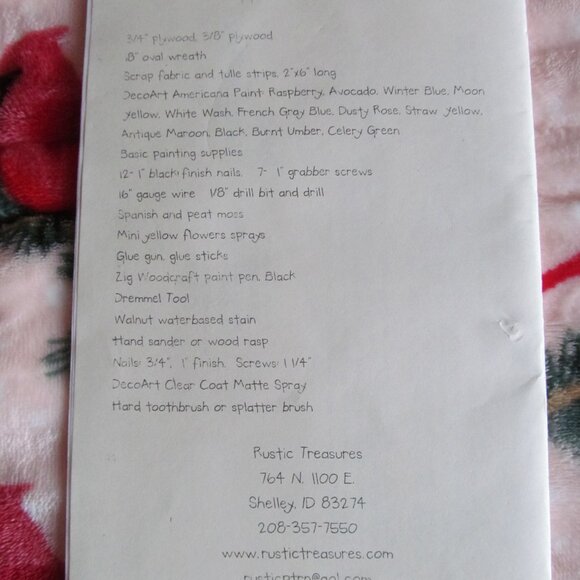 3/4" plywood, 3/8" plywood
18" oval wreath
Scrap fabric and tulle strips, 2"x6" long
DecoArt Americana Paint: Raspberry, Avocado, Winter Blue, Moon
Yellow, White Wash, French Gray Blue, Dusty Rose, Straw Yellow,
Antique Maroon, Black, Burnt Umber, Celery Green
Basic painting supplies
12- 1" black finish nails, 7- 1" grabber screws
16" gauge wire 1/8" drill bit and drill
Spanish and peat moss
Mini yellow flowers sprays
Glue gun, glue sticks
Zig Woodcraft paint pen, Black
Dremmel Tool
Walnut waterbased stain
Hand sander or wood rasp
Nails: 3/4", 1" finish. Screws: 1 1/4"
DecoArt Clear Coat Matte Spray
Hard toothbrush or splatter brush
Rustic Treasures
764 N. 1100 E.
Shelley, ID 83274
208-357-7550
www.rustictreasures.com